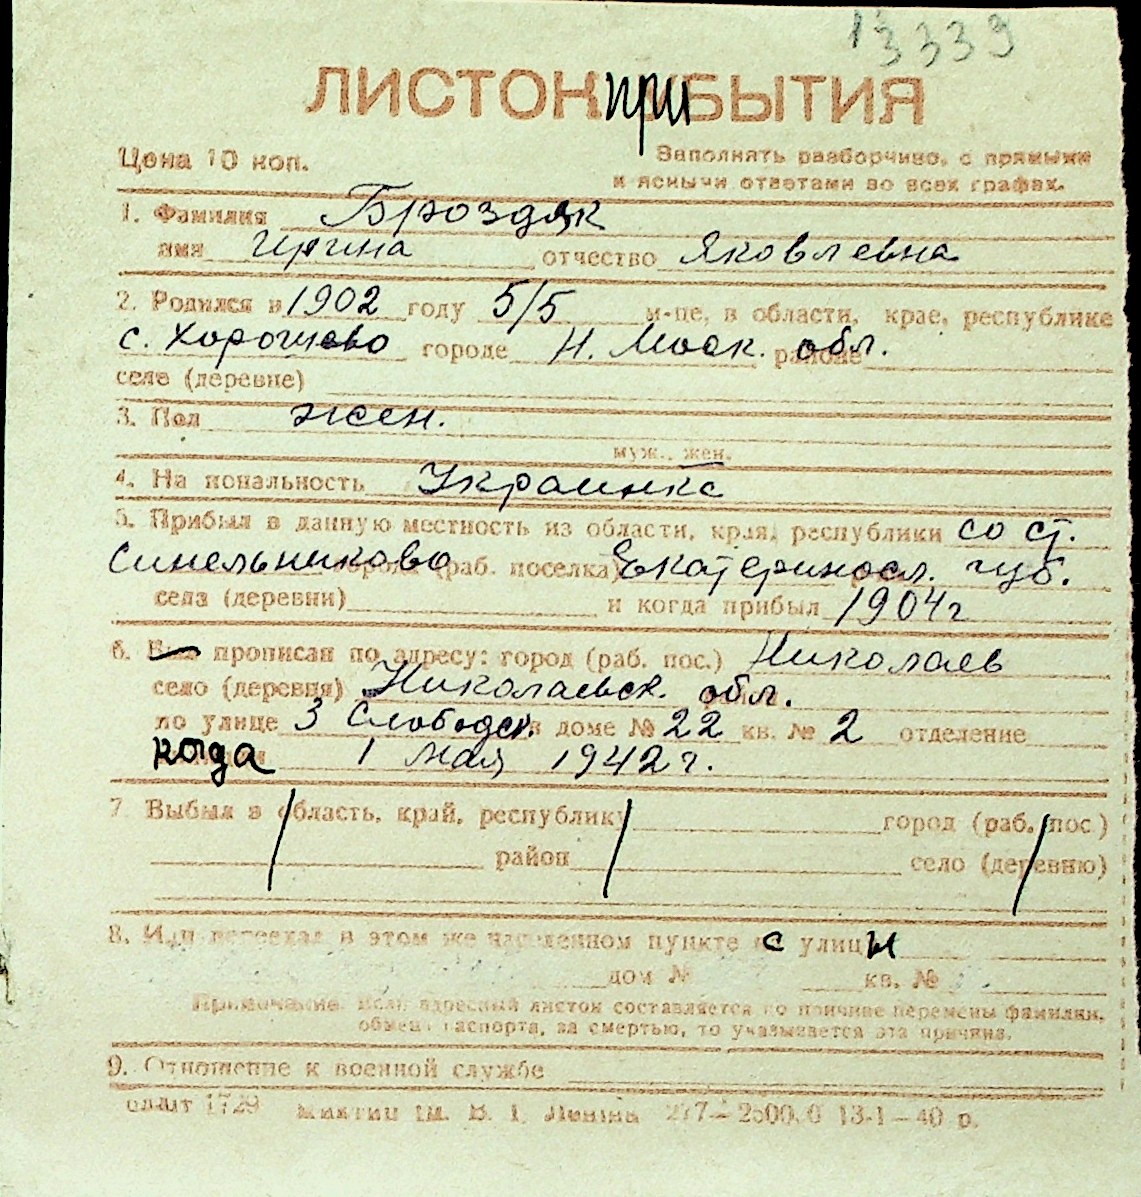 13339
ЛИСТОК при БЫТИЯ
Цена 10 коп.
Заполнять разборчиво, с прямыми
и ясными ответами во всех графах.
1. Фамилия Броздяк
имя Ирина отчество Яковлевна
2. Родился в 1902 году 5/5 м-це, в области, крае, республике
с. Хорошево городе Н. Моск. обл. районе
селе (деревне)
3. Пол жен.
муж., жен.
4. Национальность Украинка
5. Прибыл в данную местность из области, края, республики со ст.
Синельниково города (раб. поселка) Екатериносл. губ.
села (деревни) и когда прибыл 1904г
6. прописан по адресу: город (раб. пос.) Николаев
село (деревня) Николаевск. обл.
по улице 3 Слободск. в доме № 22 кв. № 2 отделение
когда 1 мая 1942 г.
7. Выбыл в область, край, республику город (раб. пос.)
район село (деревню)
8. Или переехал в этом же населенном пункте с улицы
дом № кв. №
Примечание. Если адресный листок составляется по причине перемены фамилии,
обмена паспорта, за смертью, то указывается эта причина.
9. Отношение к военной службе
1729 Ім. В. І. Леніна 277—2500.0 13-1—40 р.